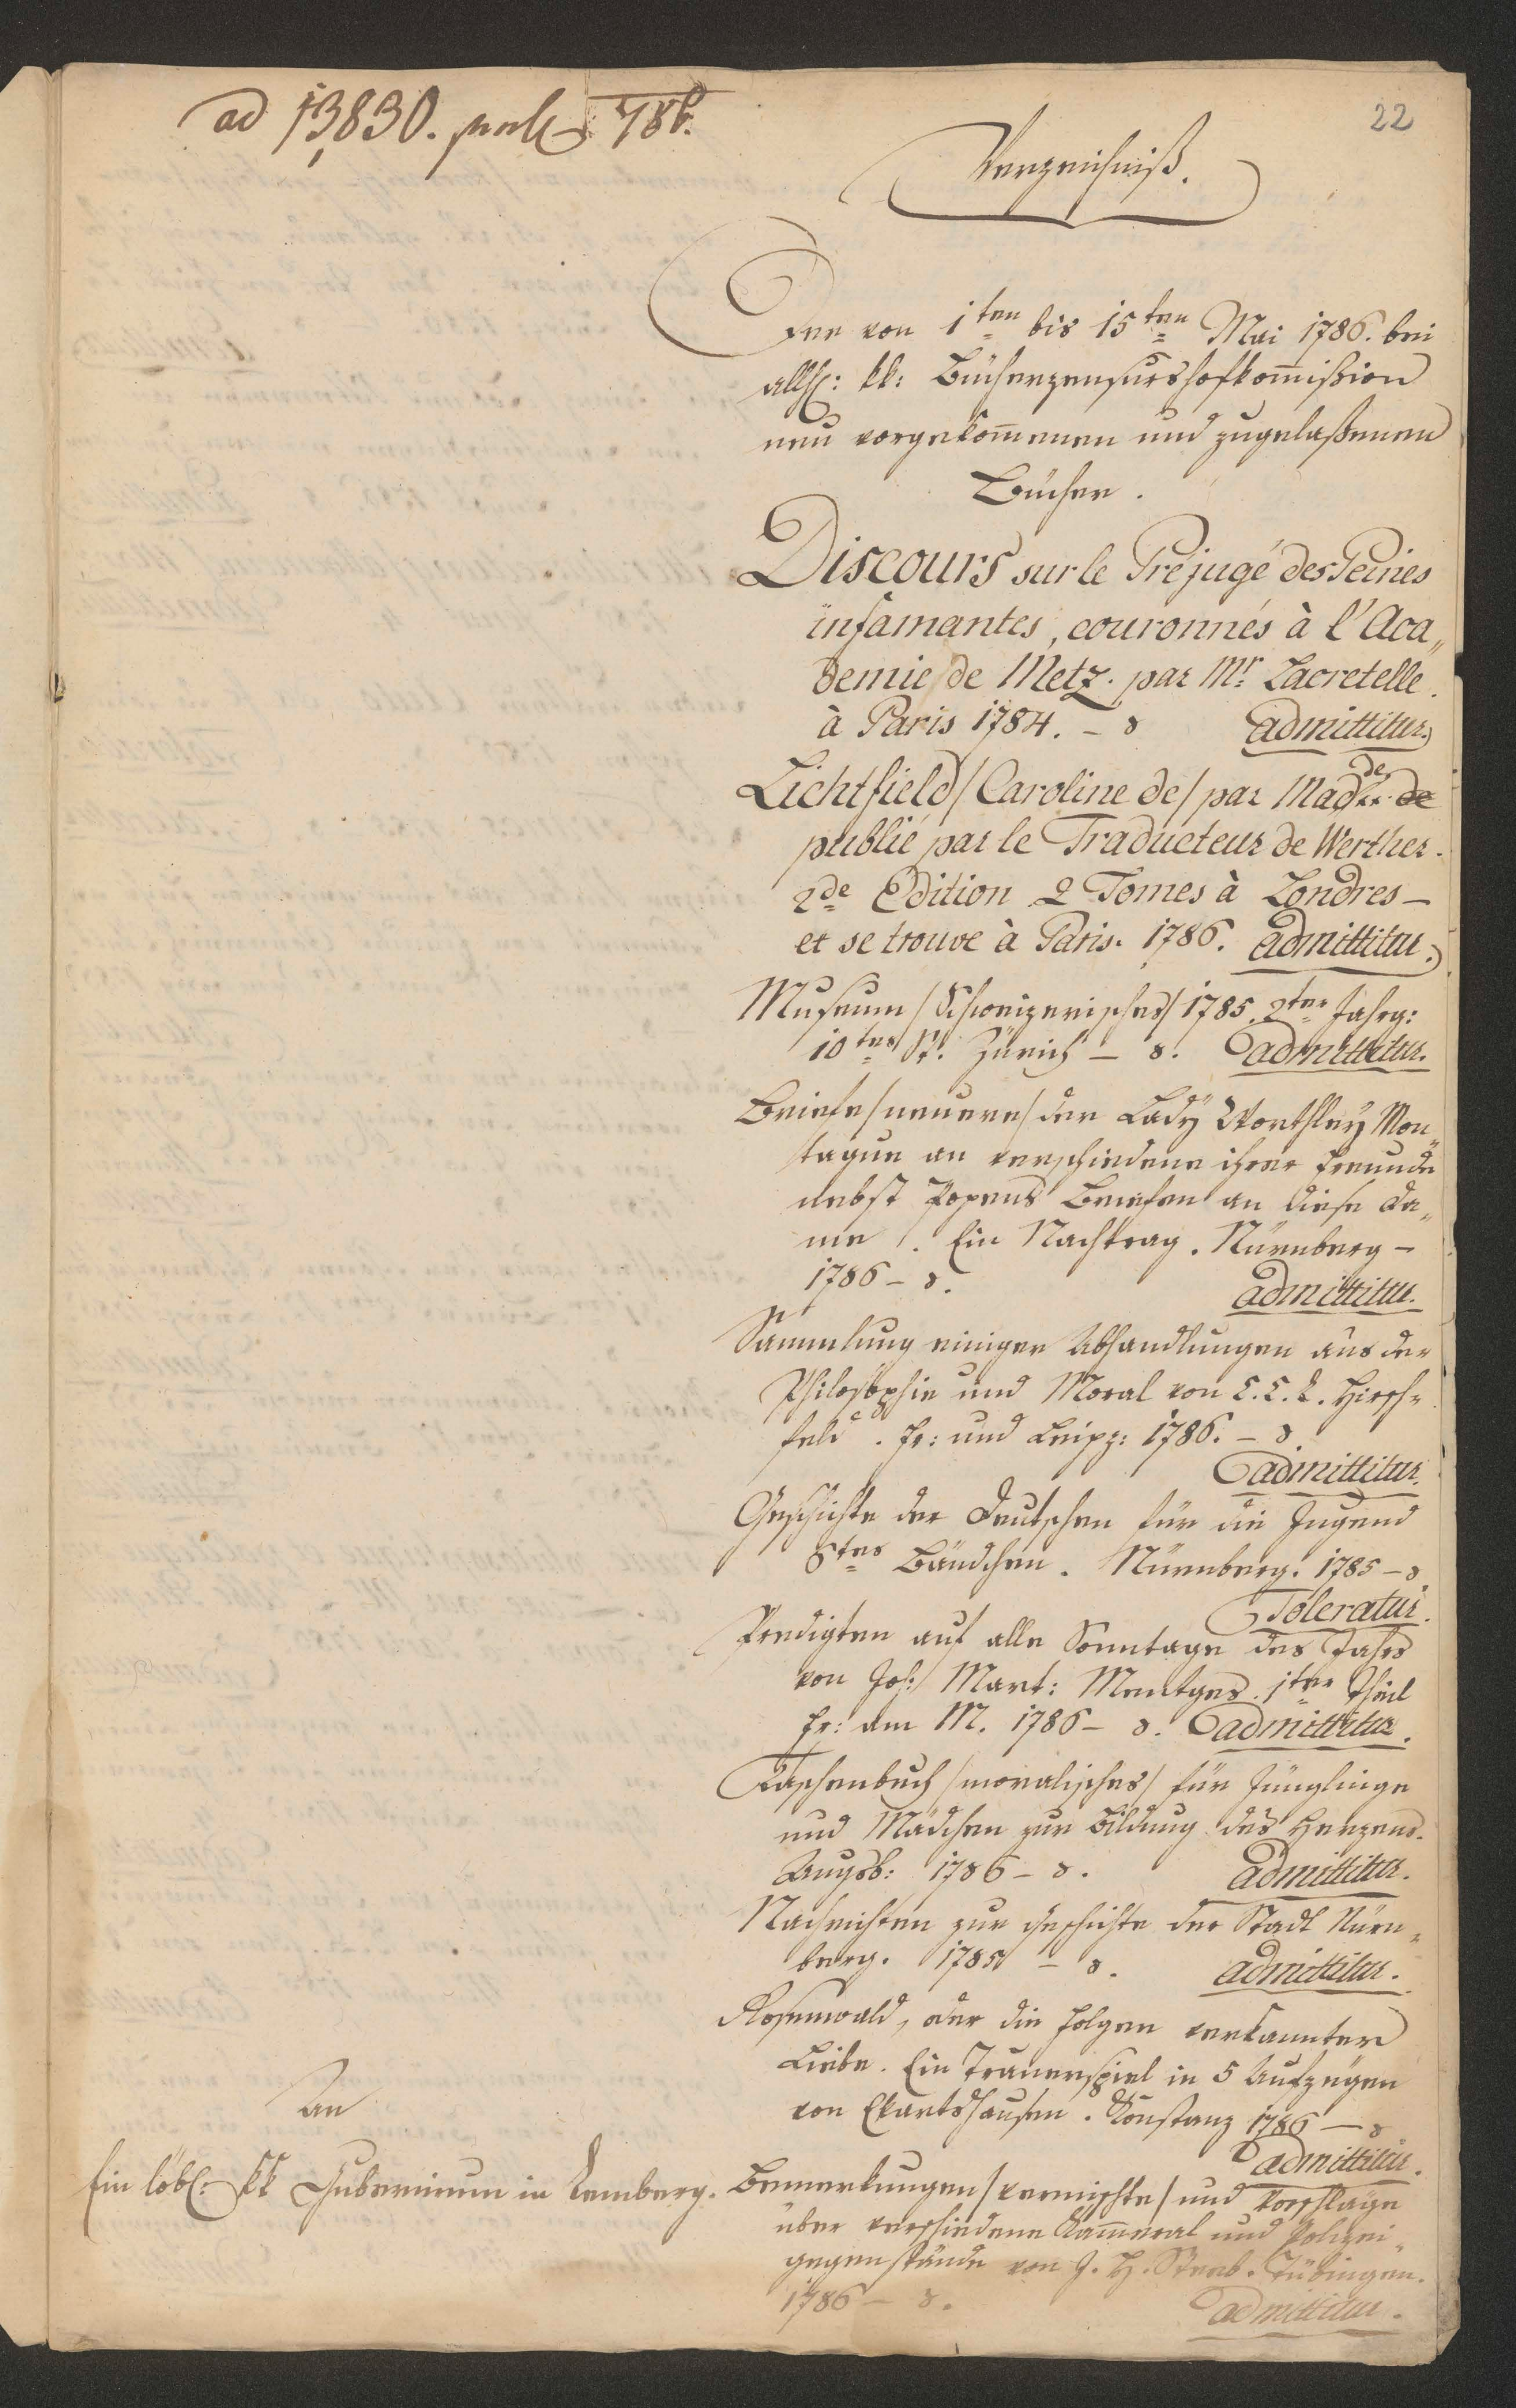 ad 13,830. 786.
22
Verzeichniß.
Der von 1ten bis 15ten Mai 1786. bei
allh: kk: Bücherzensurshofkom̅ißion
neu vorgekom̅enen und zugelaßenen
Bücher.
Discours sur le Préjugé des Peines
infamantes, couronnés à l'Aca„
demie de Metz. par Mr. Lacretelle.
à Paris 1784. – 8 admittitur.
Lichtfield / Caroline de / par Madde
publié par le Traducteur de Werther.
2de Edition 2 Tomes à Londres –
et se trouve à Paris. 1786. admittitur.
Museum / Schweizerisches / 1785. 2ter Jahrg:
10tes St. Zürich – 8. admittitur.
Briefe / neuere / der Lady Worthley Mon„
tague an verschiedene ihrer Freunde
nebst Popens Briefen an diese Da„
me. Ein Nachtrag. Nürnberg –
1786 – 8. admittitur.
Sammlung einiger Abhandlungen aus der
Philosophie und Moral von C. C. L. Hirsch„
feld. Fr: und Leipz: 1786. – 8.
admittitur.
Geschichte der Deutschen für die Jugend
8tes Bändchen. Nürnberg. 1785 – 8.
Toleratur.
Predigten auf alle Sonntage des Jahrs
von Joh: Mart: Mentges. 1ter Theil
Fr: am M. 1786 – 8. admittitur.
Taschenbuch / moralisches / für Jünglinge
und Mädchen zur Bildung des Herzens.
Augsb: 1786 – 8. admittitur.
Nachrichten zur Geschichte der Stadt Nürn„
berg. 1785 – 8. admittitur.
Rosenwald, oder die Folgen verkannter
Liebe. Ein Trauerspiel in 5 Aufzügen
von Ekartshausen. Konstanz 1786 – 8
admittitur.
Bemerkungen / vermischte / und Vorschläge
über verschiedene Kam̅eral und Polizei„
gegenstände von J. H. Tübingen.
1786 – 8. admittitur.
An
Ein löbl: kk Gubernium in Lemberg.